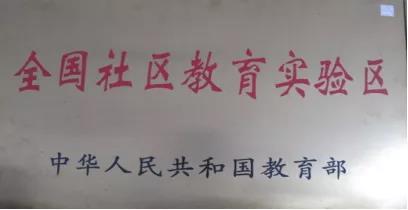 全国社区教育实验区
中华人民共和国教育部